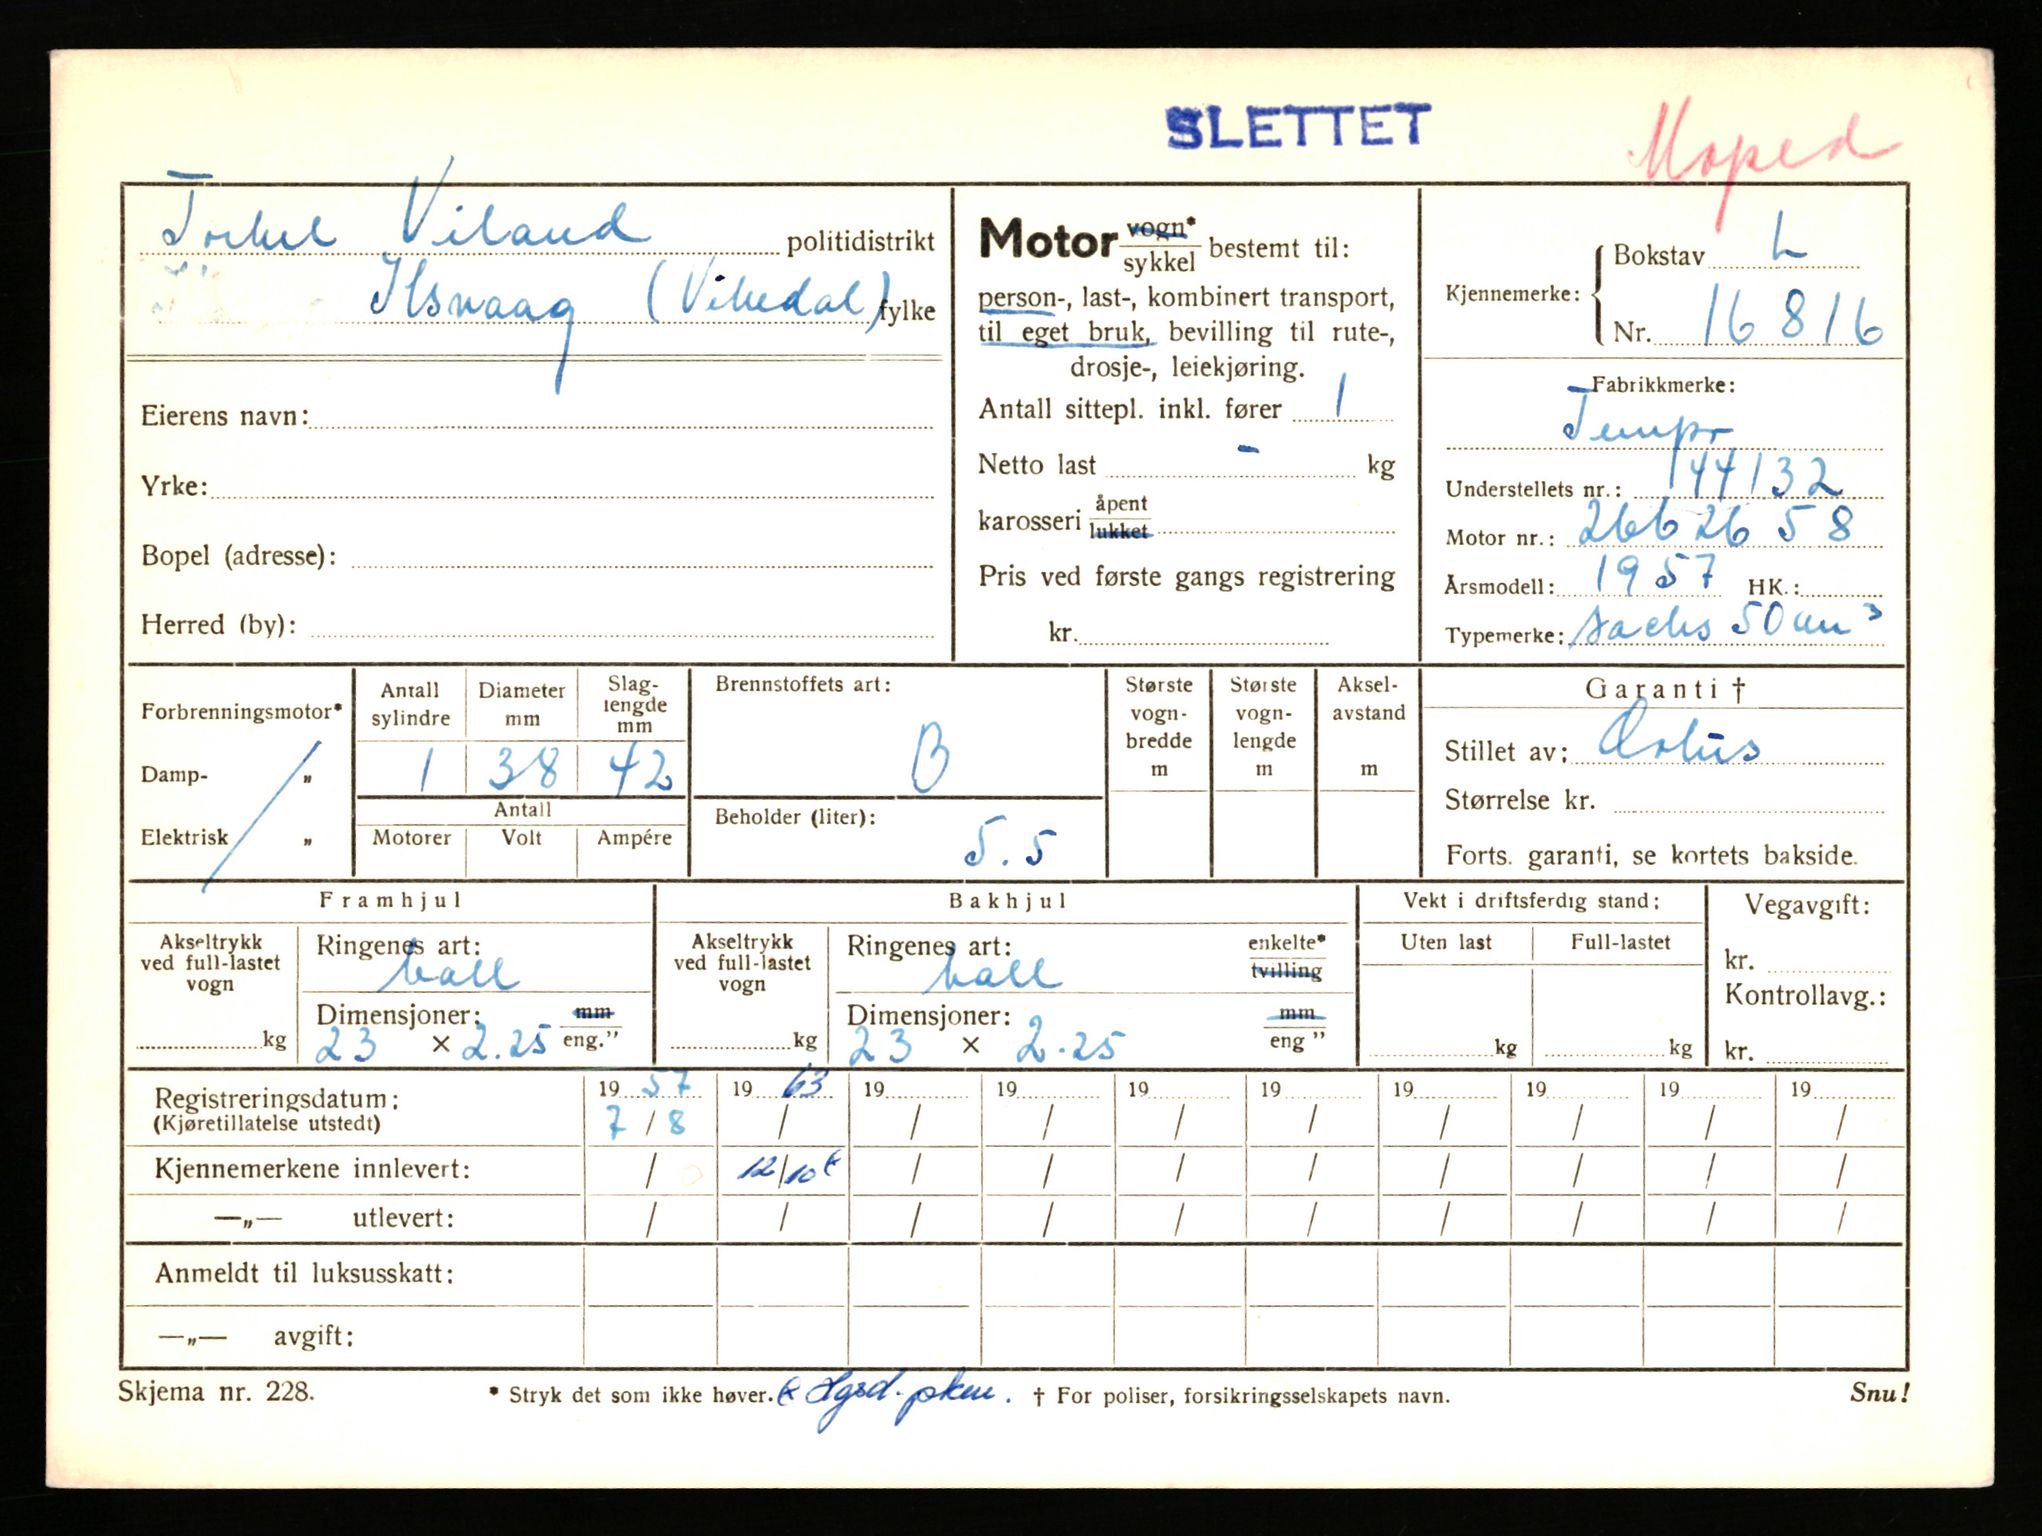 SLETTET
Moped
Torkel Viland politidistrikt
Ilsvaag (Vikedal) fylke
Eierens navn:
Yrke:
Bopel (adresse):
Herred (by):
Motor vogn* / sykkel bestemt til:
person-, last-, kombinert transport,
til eget bruk, bevilling til rute-,
drosje-, leiekjøring.
Antall sittepl. inkl. fører 1
Netto last - kg
karosseri åpent / lukket
Pris ved første gangs registrering
kr.
Kjennemerke: Bokstav L
Nr. 16816
Fabrikkmerke:
Tempo
Understellets nr.: 144132
Motor nr.: 2662658
Årsmodell: 1957 HK.:
Typemerke: Sachs 50 cm³
Forbrenningsmotor*
Damp- „
Elektrisk „
Antall sylindre Diameter mm Slag-lengde mm
1 38 42
Antall
Motorer Volt Ampére
Brennstoffets art:
B
Beholder (liter):
5.5
Største vogn-bredde m
Største vogn-lengde m
Aksel-avstand m
Garanti †
Stillet av:
Størrelse kr.
Forts. garanti, se kortets bakside.
Framhjul
Akseltrykk ved full-lastet vogn
kg
Ringenes art:
ball
Dimensjoner: mm
23 × 2.25 eng.”
Bakhjul
Akseltrykk ved full-lastet vogn
kg
Ringenes art: enkelte*
ball tvilling
Dimensjoner: mm
23 × 2.25 eng ”
Vekt i driftsferdig stand:
Uten last Full-lastet
kg kg
Vegavgift:
kr.
Kontrollavg.:
kr.
Registreringsdatum: 19 57 19 63 19 19 19 19 19 19 19 19
(Kjøretillatelse utstedt) 7/8 / / / / / / / / /
Kjennemerkene innlevert: / 12/10 / / / / / / / /
—„— utlevert: / / / / / / / / / /
Anmeldt til luksusskatt:
—„— avgift:
Skjema nr. 228.
* Stryk det som ikke høver.
† For poliser, forsikringsselskapets navn.
Snu!